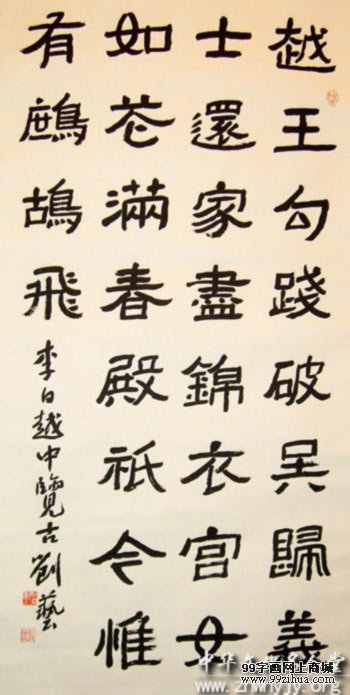 越王勾踐破吳歸義
士還家盡錦衣宮女
如花滿春殿祇令惟
有鷓鴣飛
李白越中覽古劉藝
99字画网上商城
www.99zihua.com